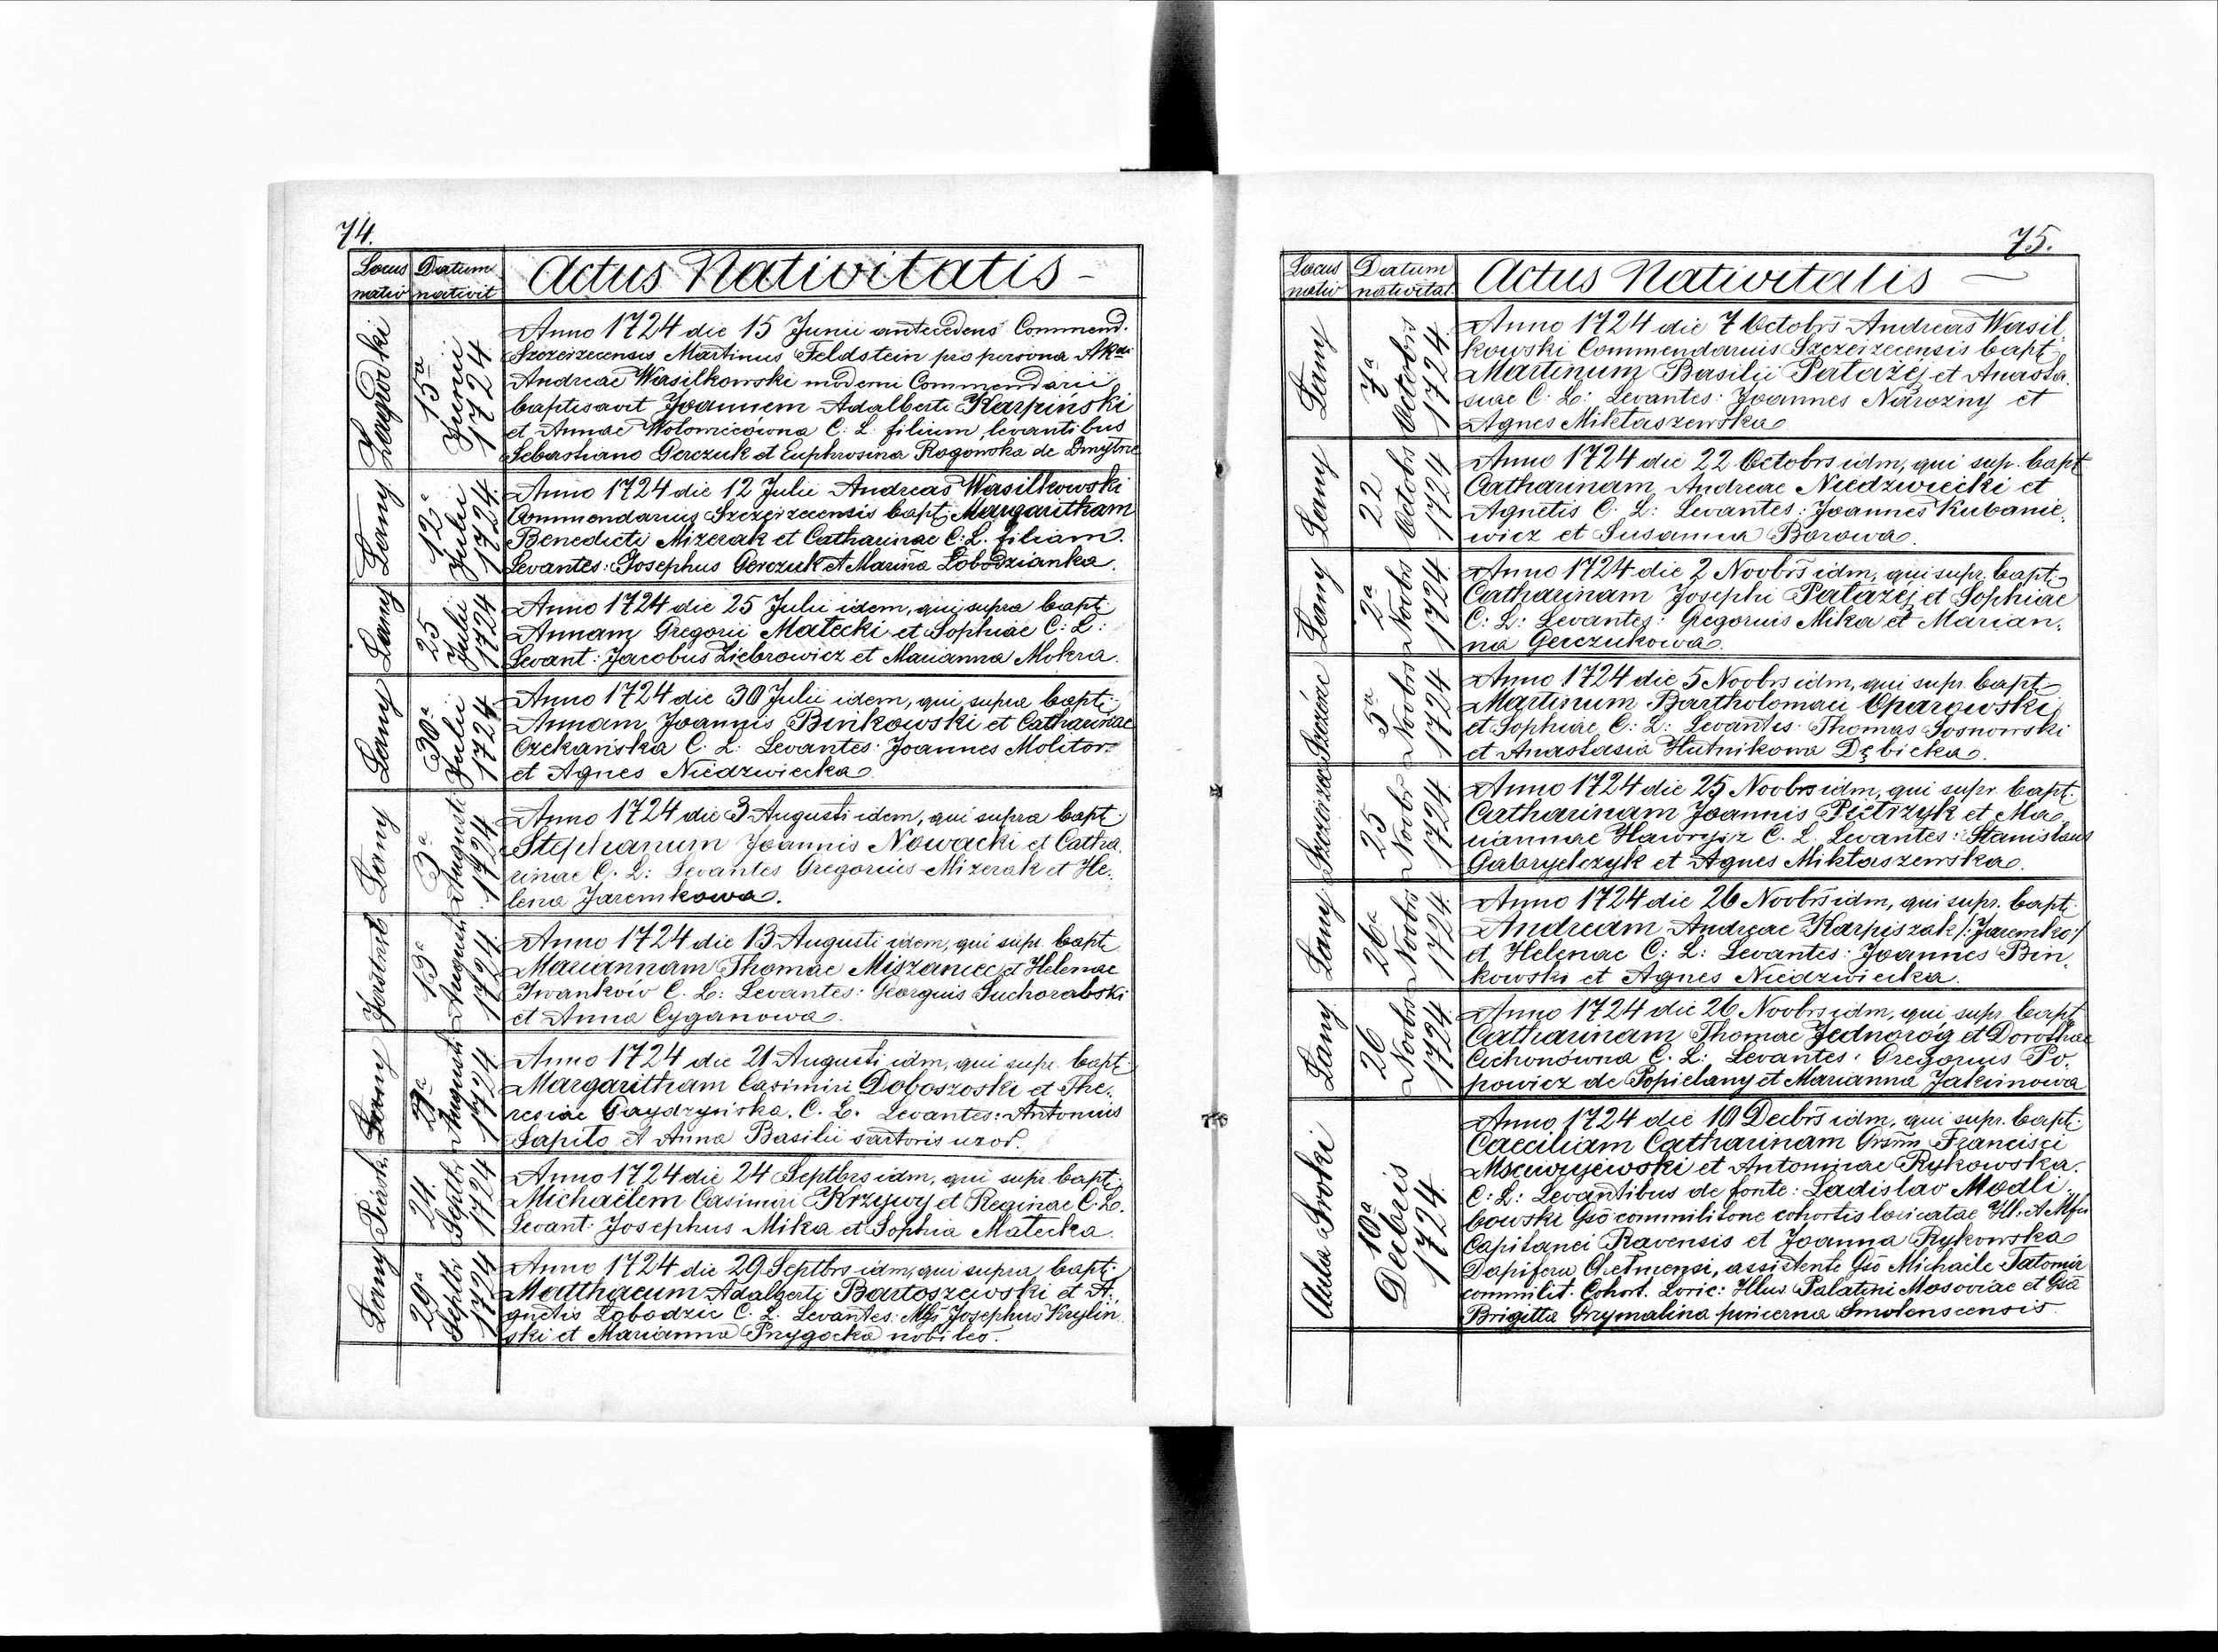 74.
Locus nativ
Datum nativit
Actus Nativitatis
Zagródki
15a Junii 1724
Anno 1724 die 15 Junii antecedens Commend.
Szczerzecensis Martinus Feldstein pro persona
Andreae Wasilkowski moderni Commendarii
baptisavit Joannem Adalberti Karpiński
et Annae Wołowicówna C: L: filium, levantibus
Sebastiano Gerczuk et Euphrosina Rogowska de Dmytrie
Łany
12a Julii 1724
Anno 1724 die 12 Julii Andreas Wasilkowski
Commendarius Szczerzecensis bapt: Margaritham
Benedicti Mizerak et Catharinae C: L. filiam.
Levantes: Josephus Gerczuk et Marina Łobodzianka.
Łany
25 Julii 1724
Anno 1724 die 25 Julii idem, qui supra bapt:
Annam Gregorii Małecki et Sophiae C: L:
Levant: Jacobus Ziebrowicz et Marianna Mokra.
Łany
30a Julii 1724
Anno 1724 die 30 Julii idem, qui supra bapt:
Annam Joannis Binkowski et Catharinae
Czekańska C. L: Levantes: Joannes Molitor
et Agnes Niedzwiecka
Łany
3a Augusti 1724
Anno 1724 die 3 Augusti idem, qui supra bapt
Stephanum Joannis Nowacki et Catha,
rinae C. L: Levantes Gregorius Mizerak et He,
lena Jaremkowa.
13a Augusti 1724
Anno 1724 die 13 Augusti idem, qui supr. bapt
Mariannam Thomae Miszaniec et Helenae
Iwanków C. L: Levantes: Georgius Suchorabski
et Anna Cyganowa.
Łany
21a Augusti 1724
Anno 1724 die 21 Augusti idm, qui supr. bapt
Margaritham Casimiri Doboszoski et The,
resiae Gaydzyńska, C. L. Levantes: Antonius
Sapito et Anna Basilii sartoris uxor.
Piaski
24. Septbr 1724
Anno 1724 die 24 Septbrs idm, qui supr. bapt:
Michaëlem Casimiri Krzywy et Reginae C. L.
Levant: Josephus Mika et Sophia Małecka.
Łany
29a Septbr 1724
Anno 1724 die 29 Septbrs idm, qui supra bapt:
Matthaeum Adalberti Bartoszewski et A,
gnetis Łobodzic C. L. Levantes: Mgs Josephus Krylin,
ski et Marianna Przygocka nobiles.
75.
Locus nativ
Datum nativitat.
Actus Nativitatis
Łany
7a Octobris 1724
Anno 1724 die 7 Octobrs Andreas Wasil,
kowski Commendarius Szczerzecensis bapt
Martinum Basilii Pałażej et Anasta,
siae C: L: Levantes: Joannes Narozny et
Agnes Mikłaszewska
Łany
22 Octobrs 1724
Anno 1724 die 22 Octobrs idm, qui sup. bapt
Catharinam Andreae Niedzwiecki et
Agnetis C. L: Levantes: Joannes Kubanie,
wicz et Susanna Borowa.
Łany
2a Novbrs 1724
Anno 1724 die 2 Novbrs idm, qui supr. bapt:
Catharinam Josephi Pałażej et Sophiae
C: L: Levantes: Gregorius Mika et Marian,
na Gerczukowa.
5a Novbrs 1724
Anno 1724 die 5 Novbrs idm, qui supr. bapt
Martinum Bartholomaei Oparowski
et Sophiae C: L: Levantes: Thomas Sosnowski
et Anastasia Hutnikowa Dębicka.
25 Novbr 1724
Anno 1724 die 25 Novbrs idm, qui supr. bapt.
Catharinam Joannis Pietrzyk et Ma,
riannae C. L. Levantes: Stanislaus
Gabryelczyk et Agnes Mikłaszewska.
Łany
26a Novbrs 1724
Anno 1724 die 26 Novbrs idm, qui supr. bapt:
Andream Andreae Karpiszak /: Jaremko :/
et Helenae C: L: Levantes: Joannes Bin,
kowski et Agnes Niedzwiecka.
Łany
26 Novbrs 1724
Anno 1724 die 26 Novbrs idm, qui supr. bapt
Catharinam Thomae Jednoróg et Dorothae
Cichonówna C. L: Levantes: Gregorius Po,
powicz de Popielany et Marianna Jakimowa
Aula Sroki
10a Decbris 1724
Anno 1724 die 10 Decbrs idm, qui supr. bapt:
Caeciliam Catharinam Francisci
et Antoninae Rykowska.
C: L: Levantibus de fonte: Ladislao Modli,
bowski Gso commilitone cohortis loricatae
Capitanei Ravensis et Joanna Rykowska
Dapifera Chełmensi, assistente Gso Michaële Tatomir
commilit. Cohort. Loric: Illus. Palatini Masoviae et Gsa
Brigitta Grzymalina pincerna Smolenscensis